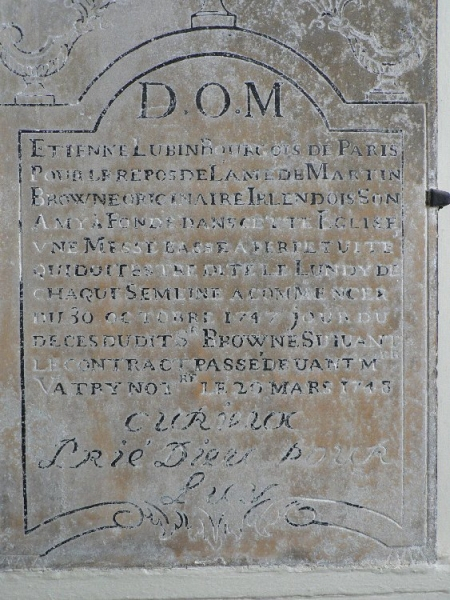 D.O.M
ETIENNE LUBIN BOURGOIS DE PARIS
POUR LE REPOS DE LAME DE MARTIN
BROWNE ORIGINAIRE IRLENDOIS SON
AMY A FONDE DANS CETTE EGLISE
VNE MESSE BASSE A PERPETUITE
QUI DOIT ESTRE DITE LE LUNDY DE
CHAQUE SEMEINE A COMMENCER
DU 30 OCTOBRE 1747 JOUR DU
DECES DUDIT Sr BROWNE SUIUANT
LE CONTRACT PASSÉ DEUANT Me
VATRY NOTre LE 29 MARS 1748
Prié Dieu pour
Luy